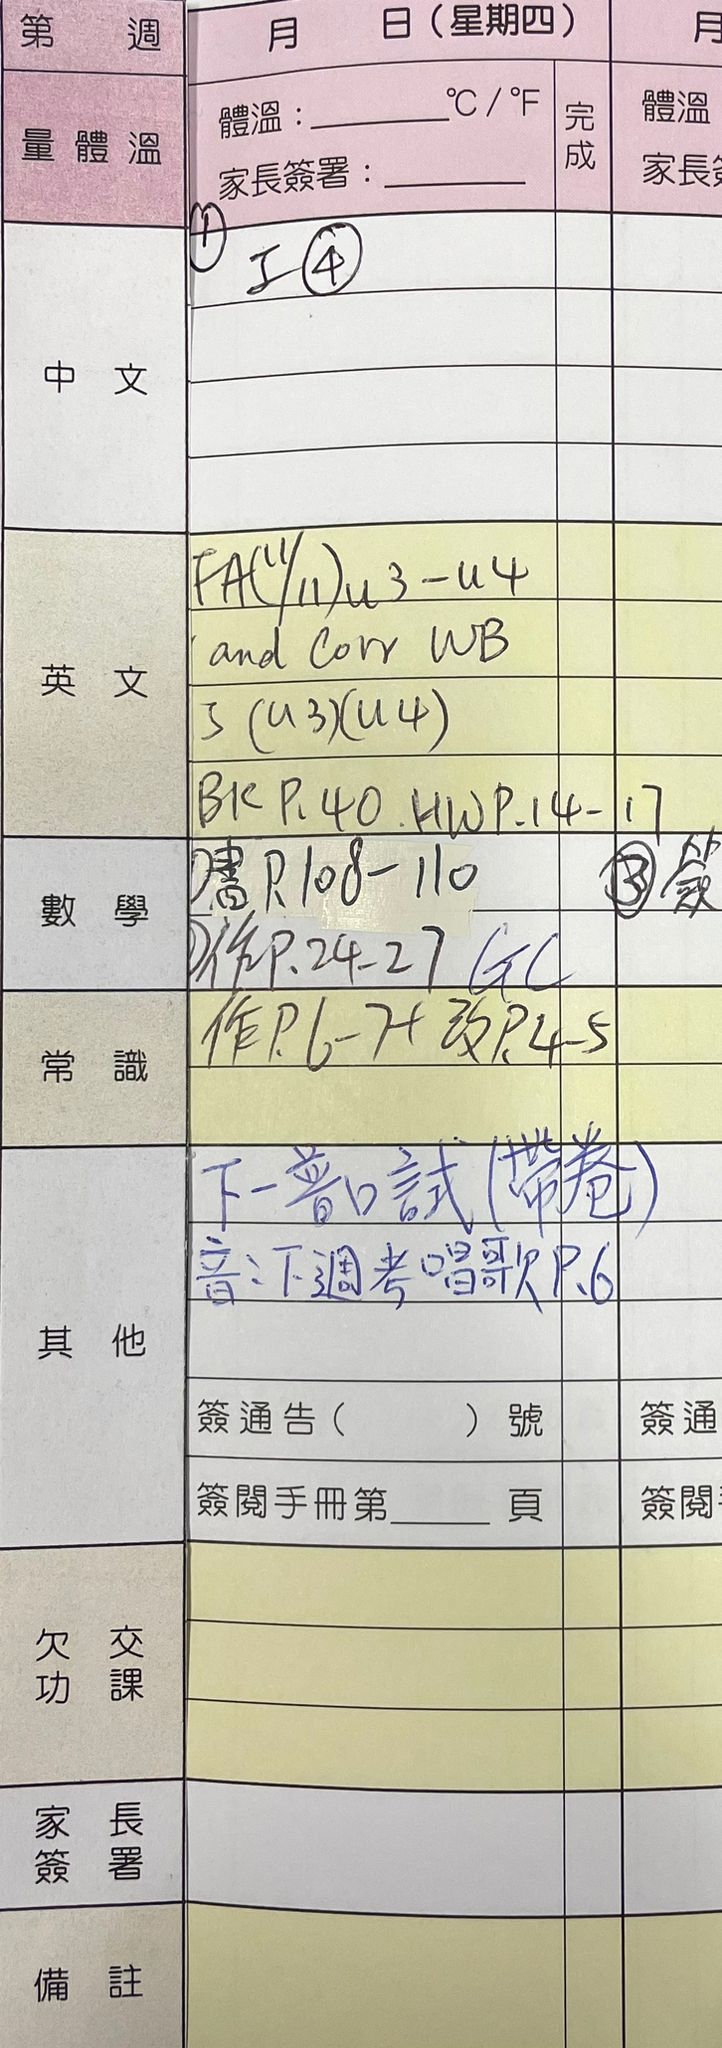 第 週
月 日(星期四)
月
量體溫
體溫:______℃/℉
家長簽署:______
完成
體溫
家長簽
中文
① 工④
英文
FA(11/11)u3-u4
and Corr WB
(u3)(u4)
BK P.40. HW P.14-17
數學
書P.108-110
③簽
作P.24-27 GC
常識
作P.6-7+改P.4-5
其他
下一普口試(帶卷)
音:下週考唱歌P.6
簽通告( )號
簽通
簽閱手冊第______頁
簽閱
欠交功課
家長簽署
備註